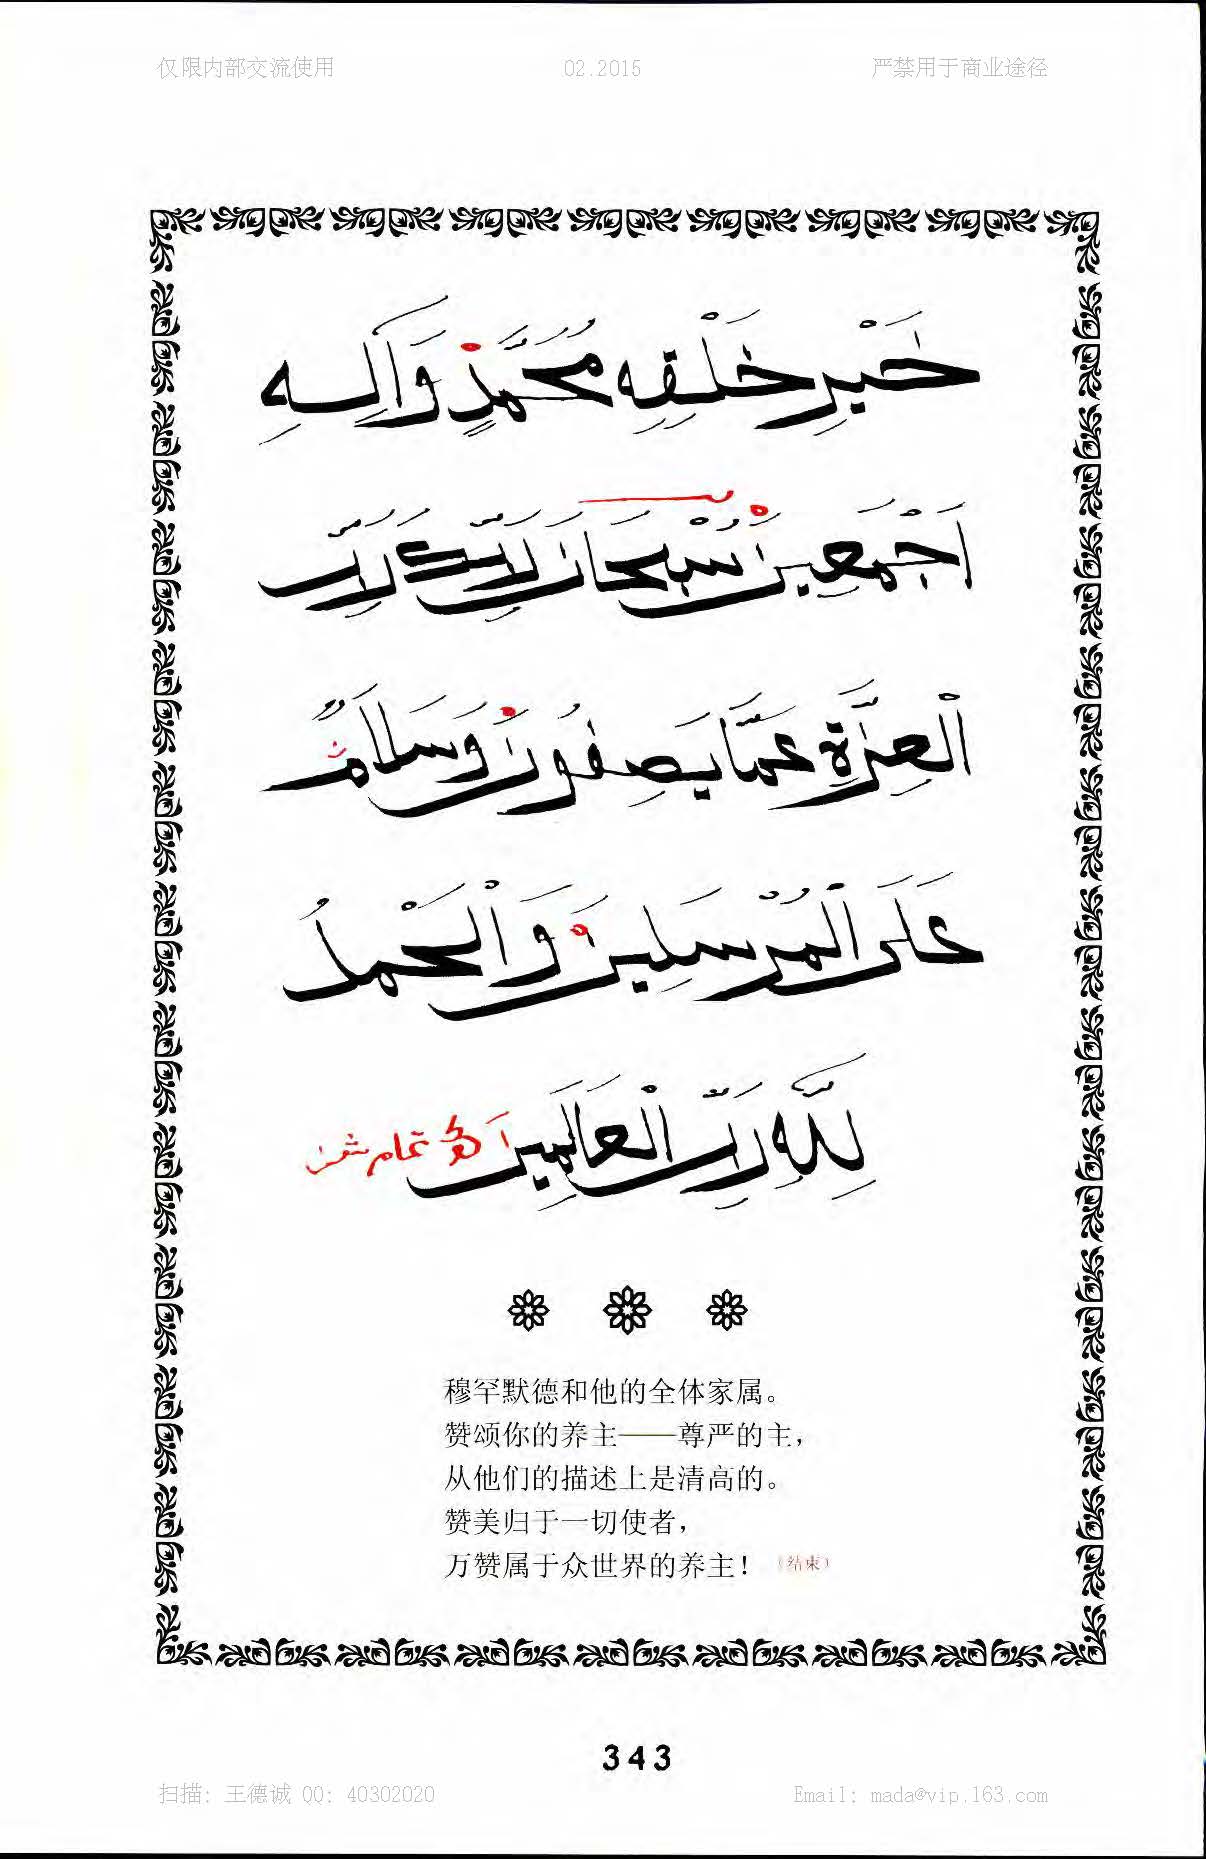 仅限内部交流使用 02.2015 严禁用于商业途径
خَيْرِ خَلْقِهِ مُحَمَّدٍ وَآلِهِ
اَجْمَعِينَ سُبْحَانَ رَبِّكَ رَبِّ
الْعِزَّةِ عَمَّا يَصِفُونَ وَسَلَامٌ
عَلَى الْمُرْسَلِينَ وَالْحَمْدُ
لِلَّهِ رَبِّ الْعَالَمِينَ
穆罕默德和他的全体家属。
赞颂你的养主——尊严的主，
从他们的描述上是清高的。
赞美归于一切使者，
万赞属于众世界的养主！（结束）
343
扫描：王德诚 QQ：40302020 Email：mada@vip.163.com